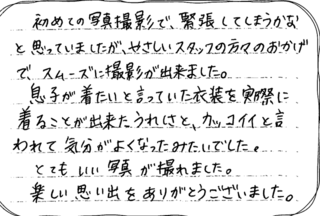 初めての写真撮影で、緊張してしまうかな
と思っていましたが、やさしいスタッフの方々のおかげ
で、スムーズに撮影が出来ました。
息子が着たいと言っていた衣装を実際に
着ることが出来たうれしさと、カッコイイと言
われて気分がよくなったみたいでした。
とてもいい写真が撮れました。
楽しい思い出をありがとうございました。